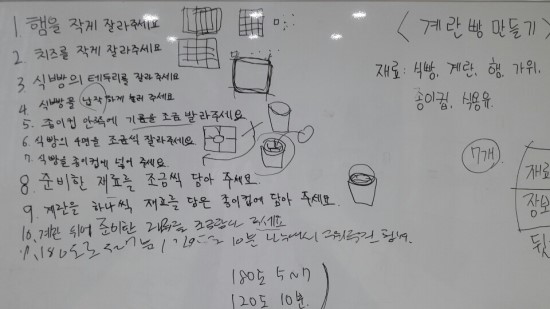 1. 햄을 작게 잘라주세요
2. 치즈를 작게 잘라주세요
3. 식빵의 테두리를 잘라주세요
4. 식빵을 납작하게 눌러 주세요
5. 종이컵 안쪽에 기름을 조금 발라주세요
6. 식빵의 4면을 조금씩 잘라주세요
7. 식빵을 종이컵에 넣어 주세요.
8. 준비한 재료를 조금씩 담아 주세요.
9. 계란을 하나씩 재료를 담은 종이컵에 담아 주세요.
10. 계란 위에 준비한 재료를 조금 주세요
11. 180도로 5~7분 10분
180도 5~7
120도 10분
<계란빵 만들기>
재료: 식빵, 계란, 햄, 가위,
종이컵, 식용유.
7개
재료